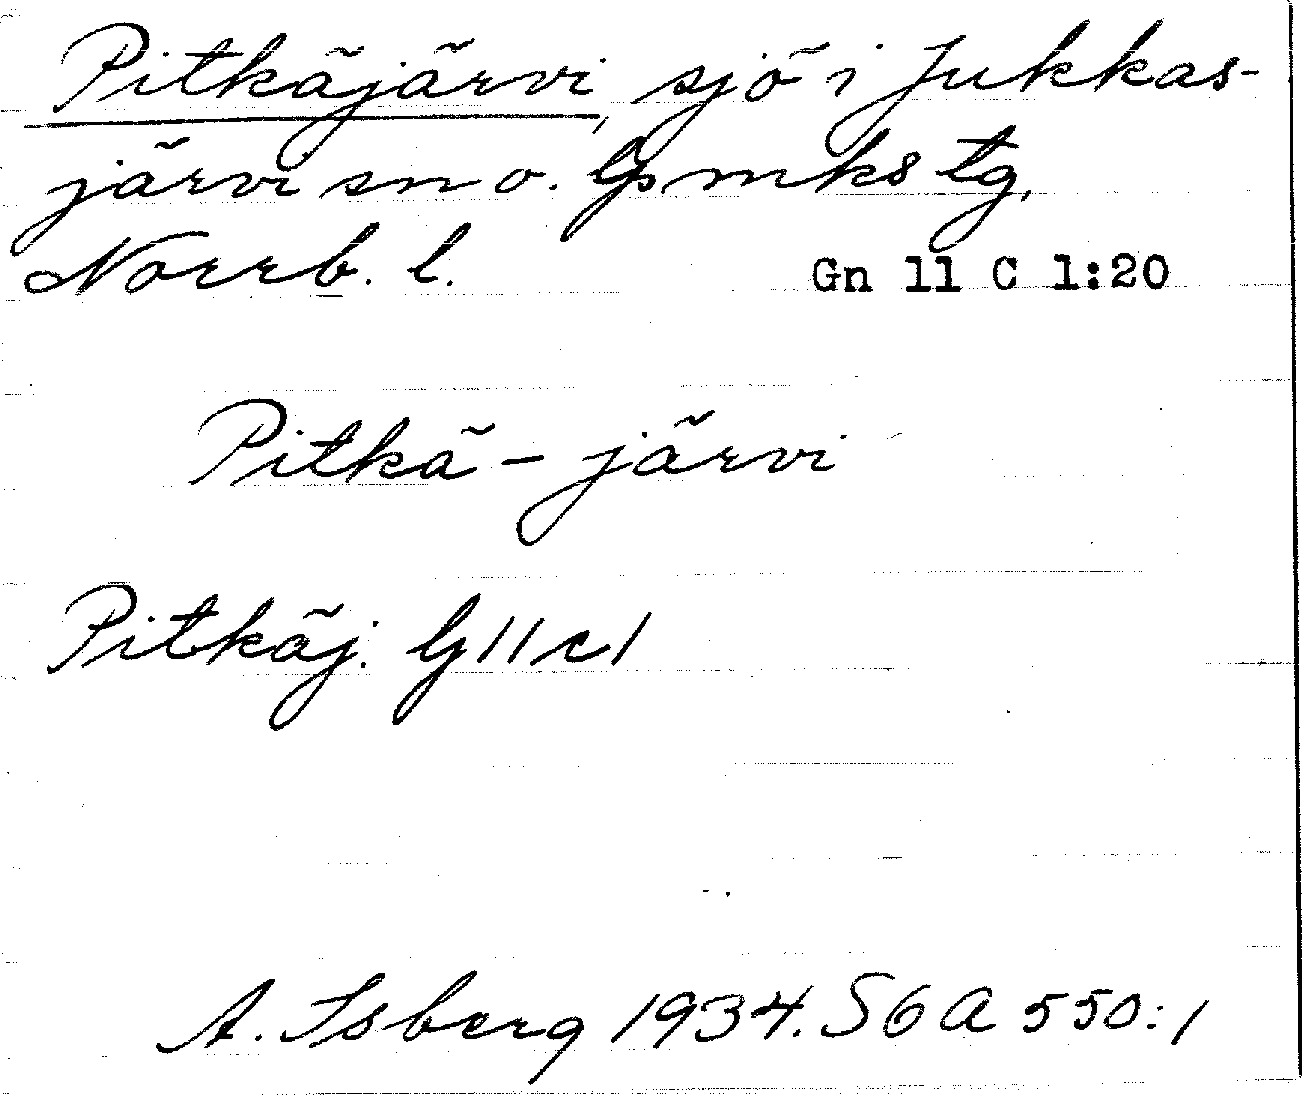 Pitkäjärvi, sjö i Jukkas-
järvi sn o. Lpmks tg,
Norrb. l. Gn 11 C 1:20
Pitkä-järvi
Pitkäj. G 11 c 1
A. Isberg 1934. SGA 550:1